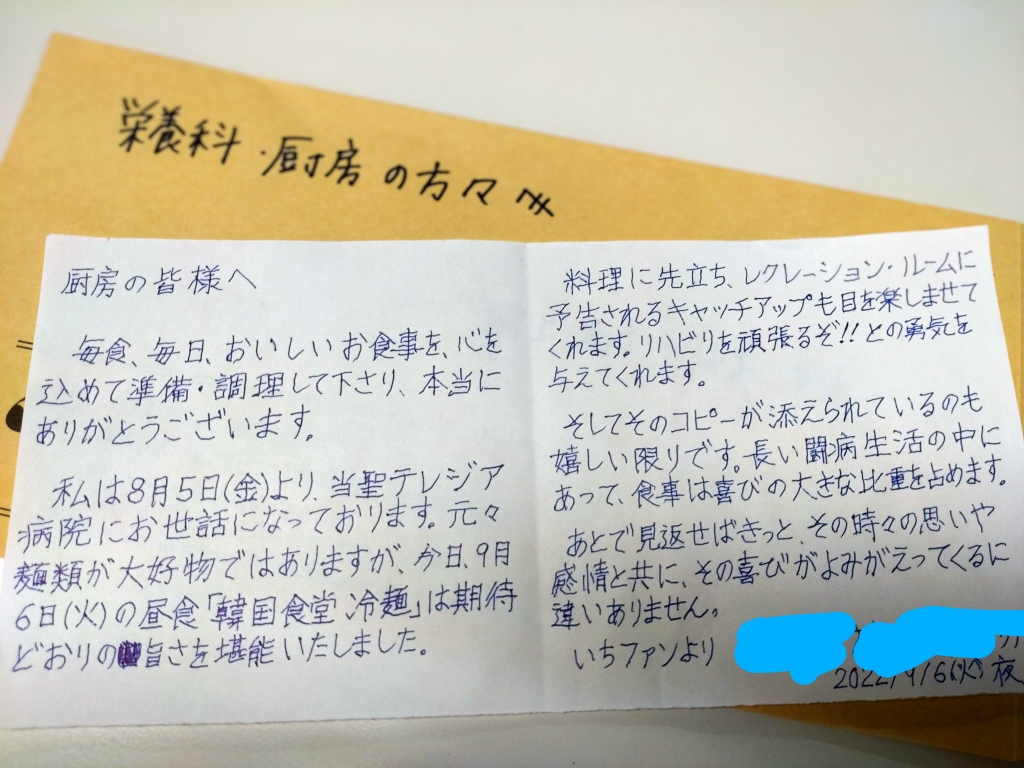 栄養科・厨房の方々へ
厨房の皆様へ
毎食、毎日、おいしいお食事を、心を
込めて準備・調理して下さり、本当に
ありがとうございます。
私は8月5日(金)より、当聖テレジア
病院にお世話になっております。元々
麺類が大好物ではありますが、今日、9月
6日(火)の昼食「韓国食堂 冷麺」は期待
どおりの旨さを堪能いたしました。
料理に先立ち、レクレーション・ルームに
予告されるキャッチアップも目を楽しませて
くれます。リハビリを頑張るぞ!!との勇気を
与えてくれます。
そしてそのコピーが添えられているのも
嬉しい限りです。長い闘病生活の中に
あって、食事は喜びの大きな比重を占めます。
あとで見返せばきっと、その時々の思いや
感情と共に、その喜びがよみがえってくるに
違いありません。
いちファンより
2022/9/6(火)夜